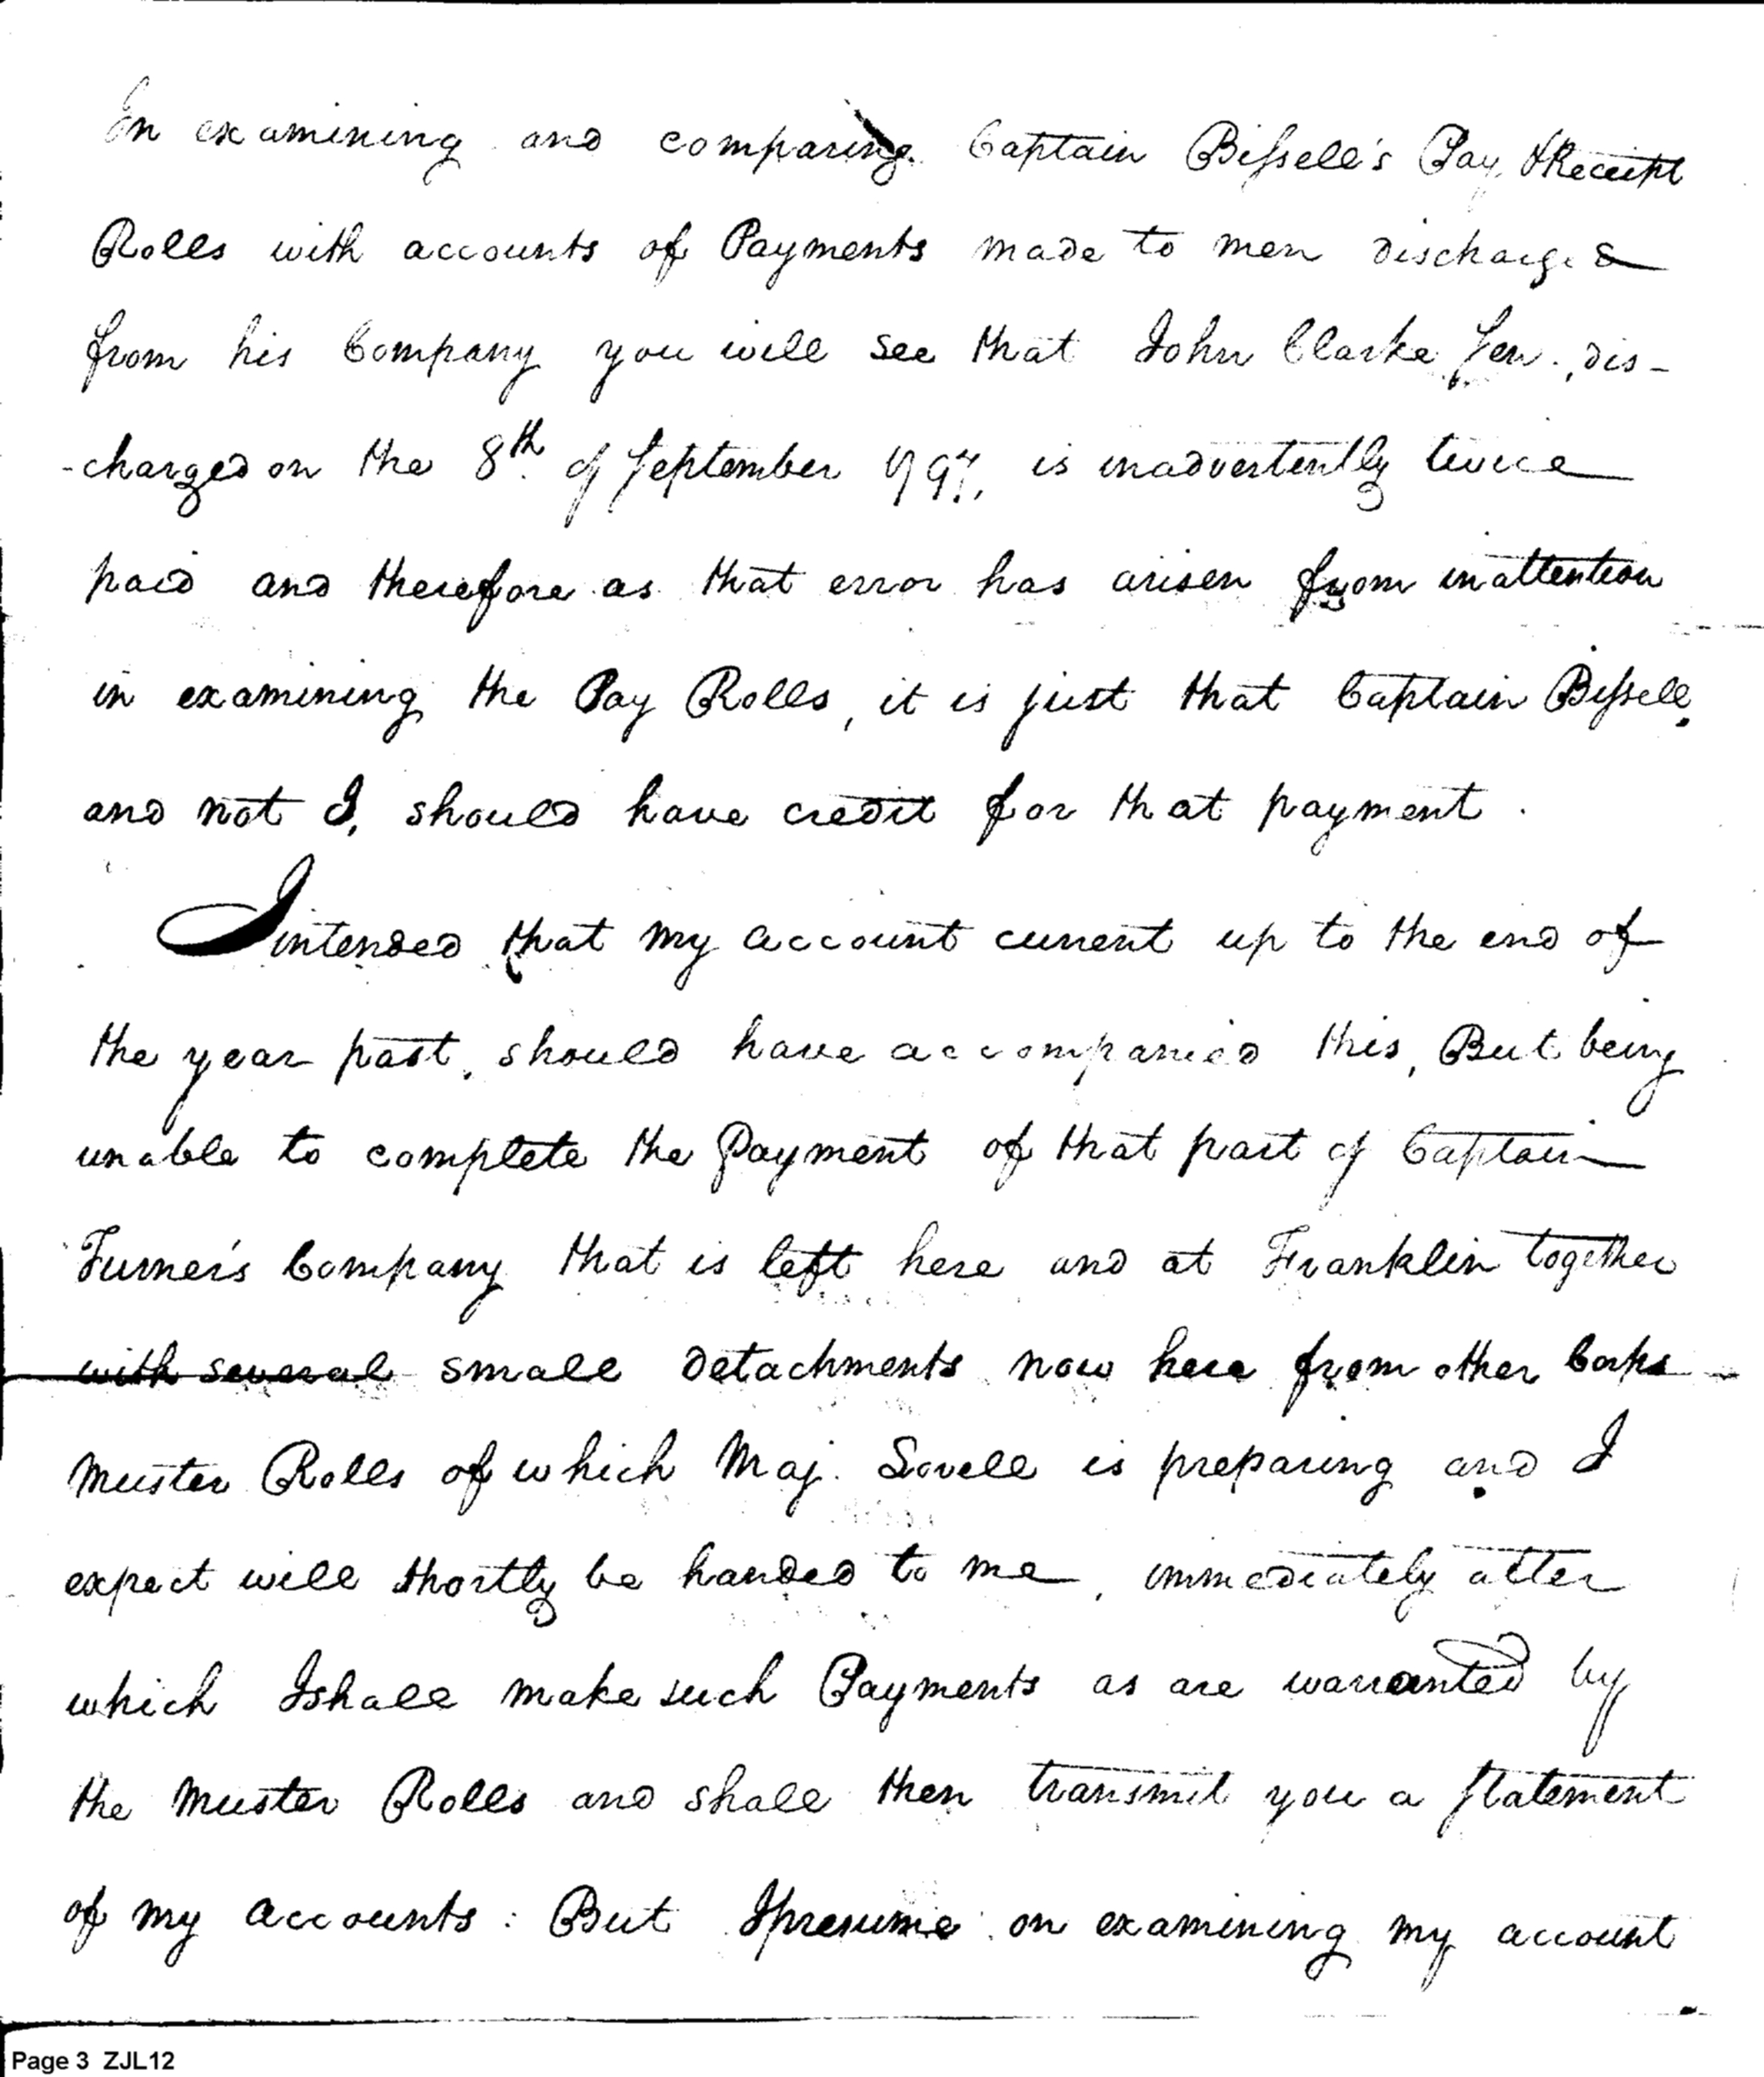 In examining and comparing Captain Bifsell's Pay & Receipt
Rolls with accounts of Payments made to men discharged
from his Company you will see that John Clarke Sen., dis-
-charged on the 8th. of September 1797, is inadvertently twice
paid and therefore as that error has arisen from inattention
in examining the Pay Rolls, it is just that Captain Bifsell,
and not I, should have credit for that payment.
I intended that my account current up to the end of
the year past, should have accompanied this, But being
unable to complete the Payment of that part of Captain
Turner's Company that is left here and at Franklin together
with several small detachments now here from other Corps
Muster Rolls of which Maj. Lovell is preparing and I
expect will shortly be handed to me, immediately after
which I shall make such Payments as are warranted by
the Muster Rolls and shall then transmit you a Statement
of my accounts: But I presume on examining my account
Page 3 ZJL12